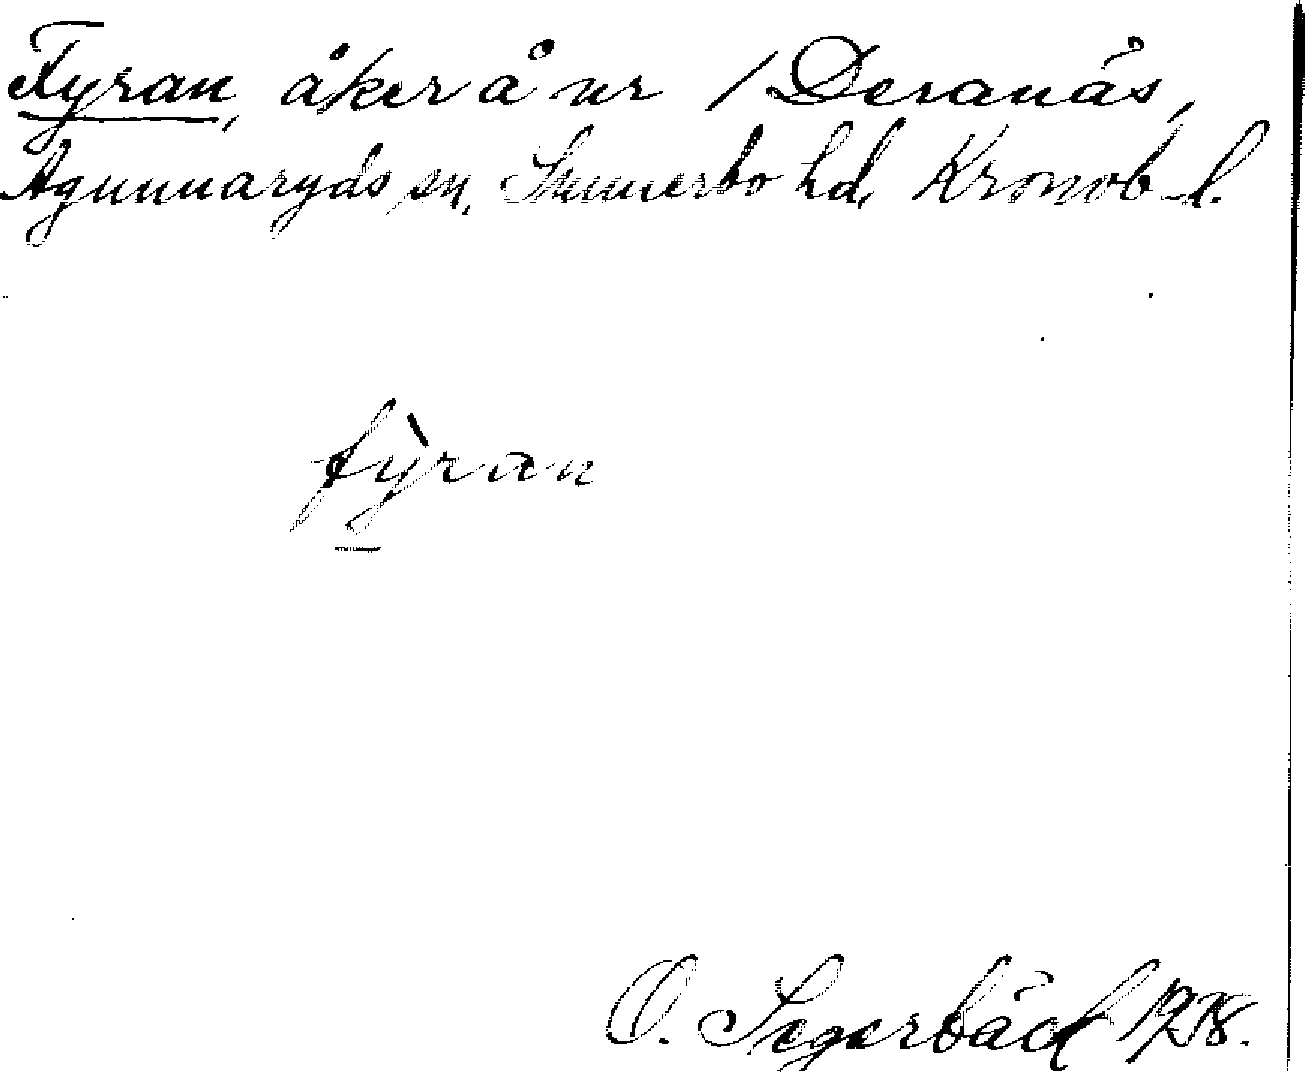 Fyran, åker å nr 1 Deranäs,
Agunnaryds sn, Sunnerbo hd, Kronob. l.
fỳran
O. Segerbäck 1928.